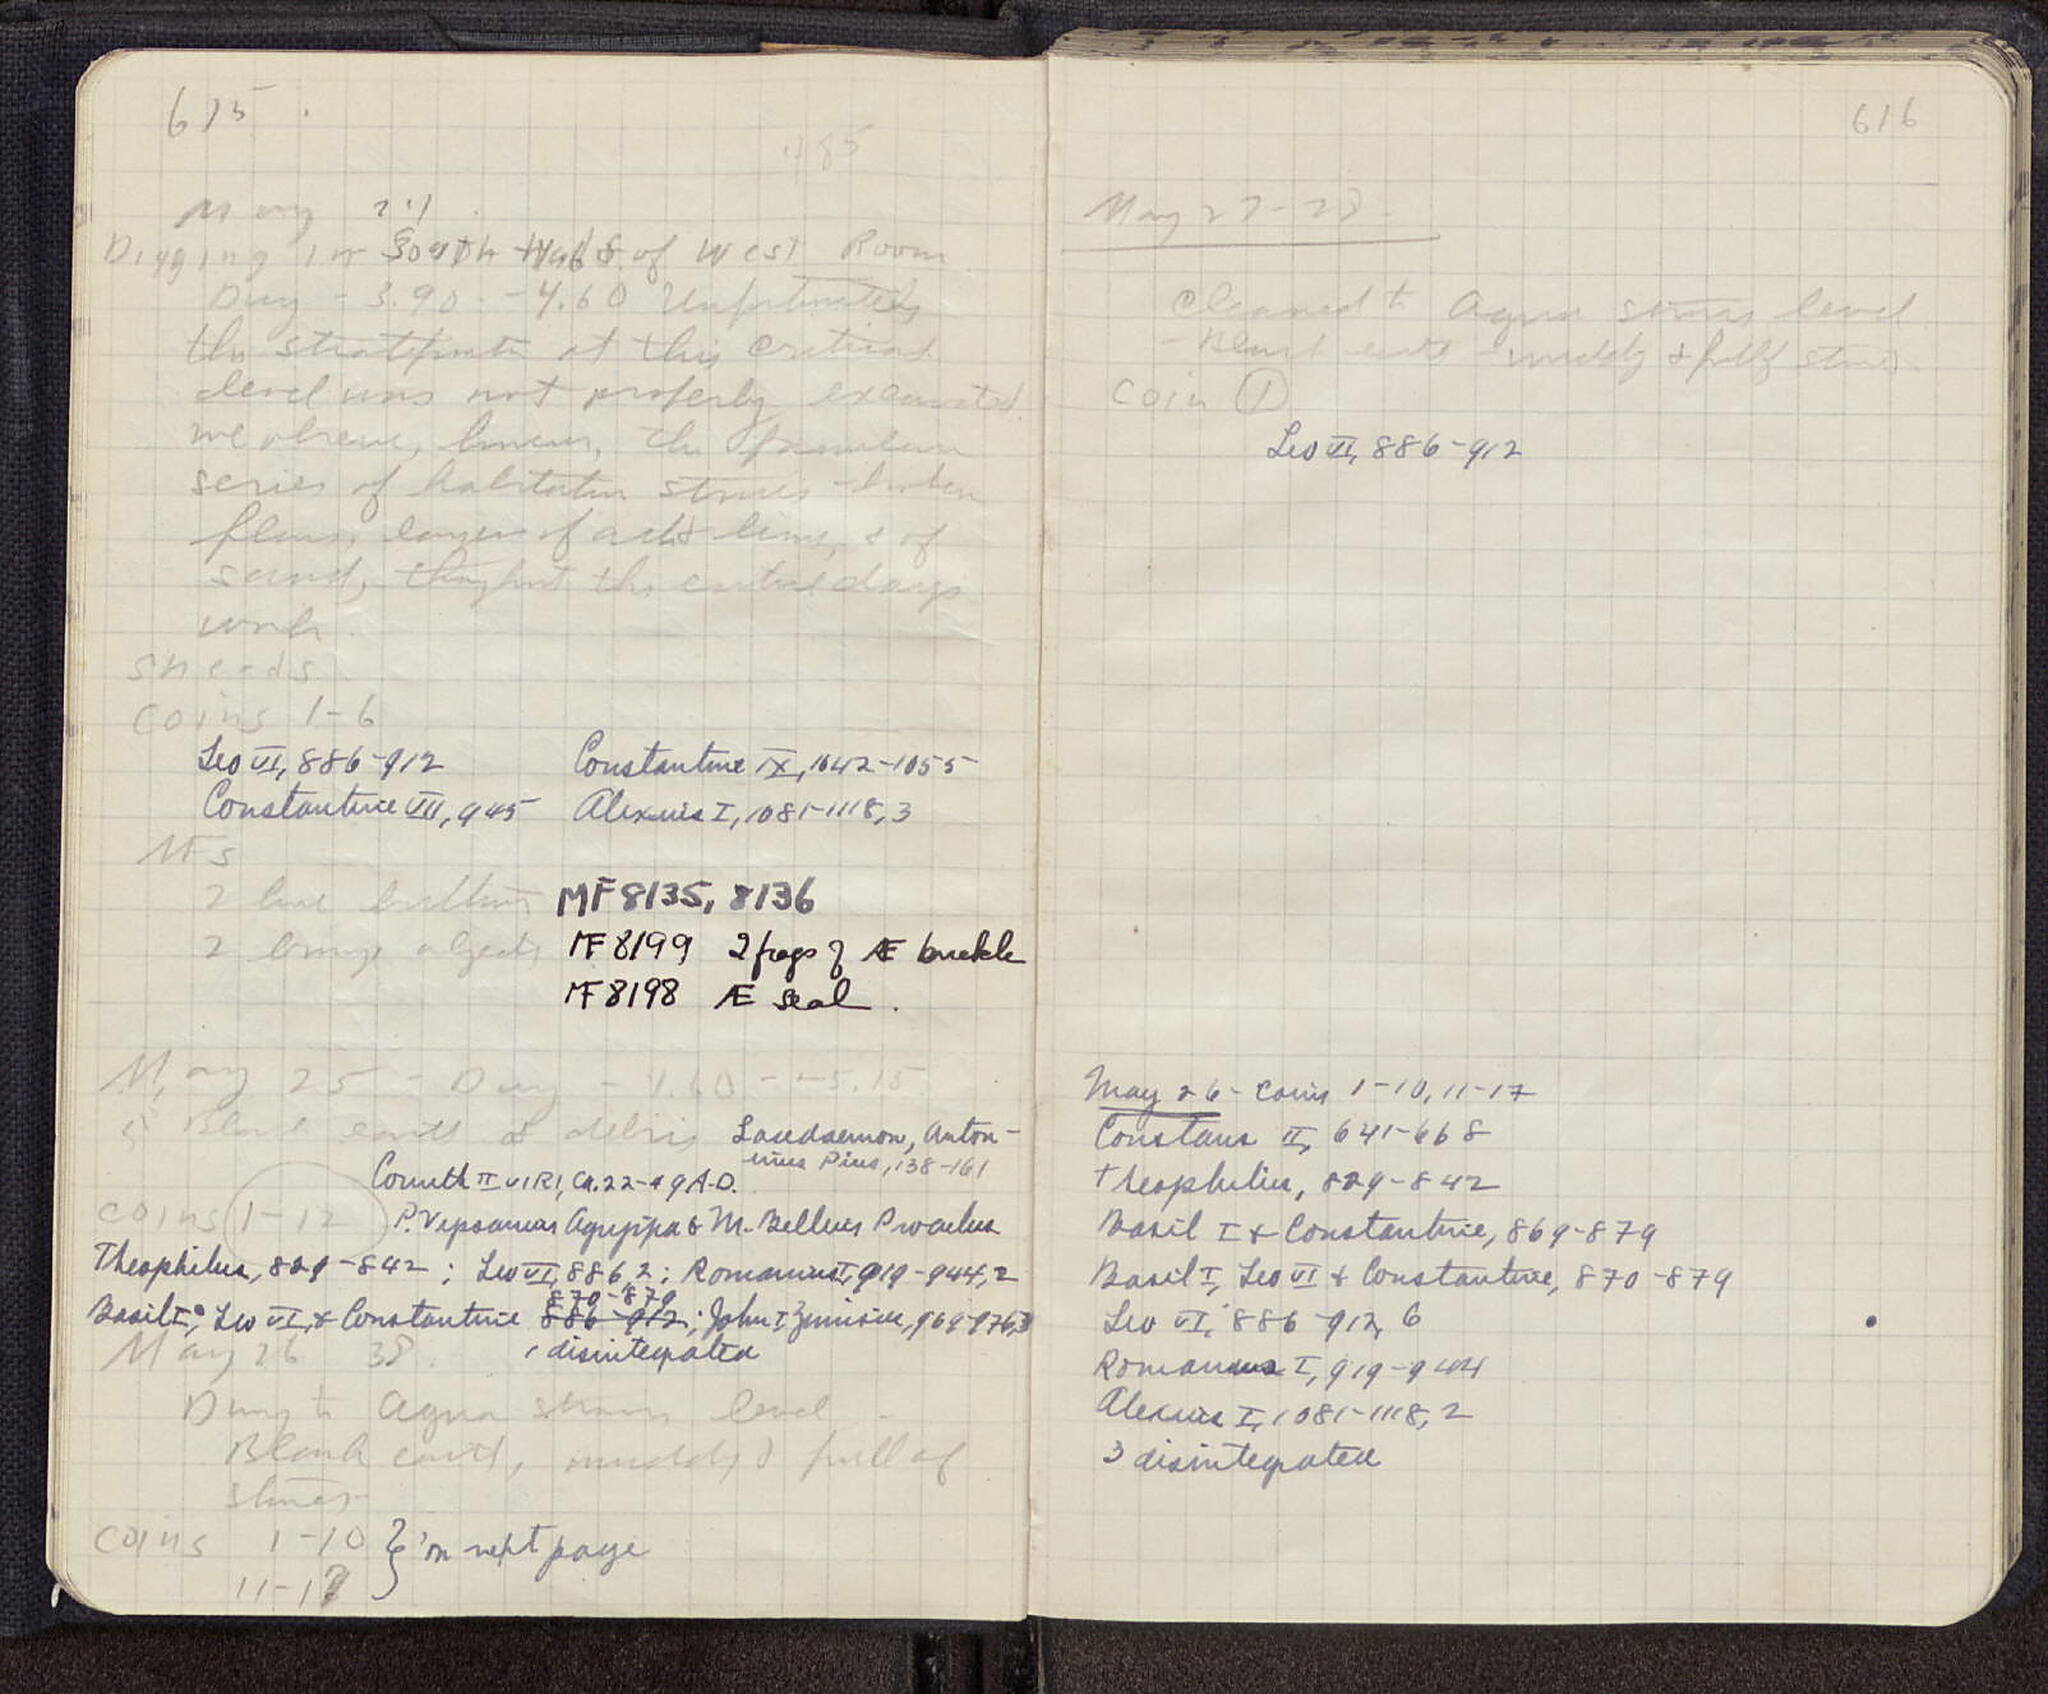 615
May 24
Digging in South Half of West Room
Dug -3.90 - -4.60 Unfortunately
the at this critical
level was not properly excavated.
we observe, the
series of habitation strata - broken
floors, layers of ash & lime, & of
sand, throughout the entire days
work.
Sherds
Coins 1-6
Leo VI, 886-912 Constantine IX, 1042-1055
Constantine VII, 945 Alexius I, 1081-1118, 3
MFs
2 buttons MF 8135, 8136
2 bronze objects MF 8199 2 frags of Æ buckle
MF 8198 Æ seal.
May 25 - Dug - 4.60 - -5.15
Black earth & debris Lacedaemon, Anton-
inus Pius, 138-161
Corinth II VIRI, Ca. 22-49 A.D.
Coins 1-12 P. Vipsanius Agrippa & M. Bellius Proculus
Theophilus, 829-842; Leo VI, 886, 2; Romanus I, 919-944, 2
870-879
Basil I, Leo VI, & Constantine 886-912; John I Zimisces, 969-976, 3
1 disintegrated
May 26 38.
Dug to Agora strosis level
Black earth, muddy & full of
stones
Coins 1-10 } on next page
11-17
616
May 27-28
Cleaned to Agora strosis level
- Black earth - muddy & full stones.
Coin 1
Leo VI, 886-912
May 26 - Coins 1-10, 11-17
Constans II, 641-668
Theophilus, 829-842
Basil I & Constantine, 869-879
Basil I, Leo VI & Constantine, 870-879
Leo VI, 886-912, 6
Romanus I, 919-944
Alexius I, 1081-1118, 2
3 disintegrated